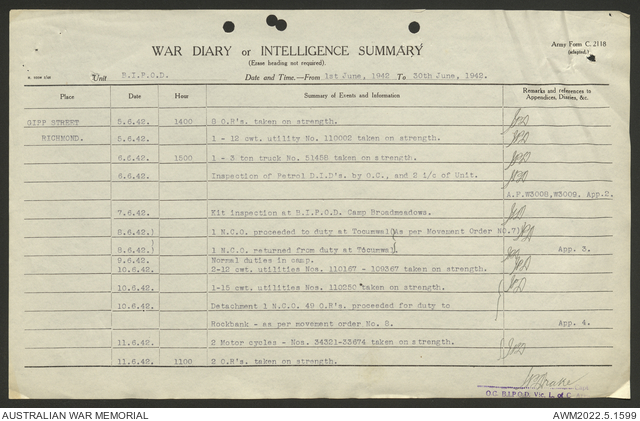 WAR DIARY or INTELLIGENCE SUMMARY
Army Form C. 2118
(adapted.)
(Erase heading not required).
Unit B.I.P.O.D. Date and Time.—From 1st June, 1942 To 30th June, 1942.
Place Date Hour Summary of Events and Information Remarks and references to Appendices, Diaries, &c.
GIPP STREET 5.6.42. 1400 9 O.R's. taken on strength.
RICHMOND. 5.6.42. 1 - 12 cwt. utility No. 110002 taken on strength.
6.6.42 1500 1 - 3 ton truck No. 51458 taken on strength.
6.6.42. Inspection of Petrol D.I.D's. by O.C., and 2 i/c of Unit.
A.F.W3008,W3009. App.2.
7.6.42. Kit inspection at B.I.P.O.D. Camp Broadmeadows.
8.6.42.) 1 N.C.O. proceeded to duty at Tocumwal(As per Movement Order NO.7)
8.6.42.) 1 N.C.O. returned from duty at Tocumwal. App. 3.
9.6.42. Normal duties in camp.
10.6.42. 2-12 cwt. utilities Nos. 110167 - 109367 taken on strength.
10.6.42. 1-15 cwt. utilities Nos. 110250 taken on strength.
10.6.42. Detachment 1 N.C.O. 49 O.R's. proceeded for duty to
Rookbank - as per movement order No. 8. App. 4.
11.6.42. 2 Motor cycles - Nos. 34321-33674 taken on strength.
11.6.42. 1100 2 O.R's. taken on strength.
O.C. B.I.P.O.D. Vic. L. of C.
AUSTRALIAN WAR MEMORIAL
AWM2022.5.1599